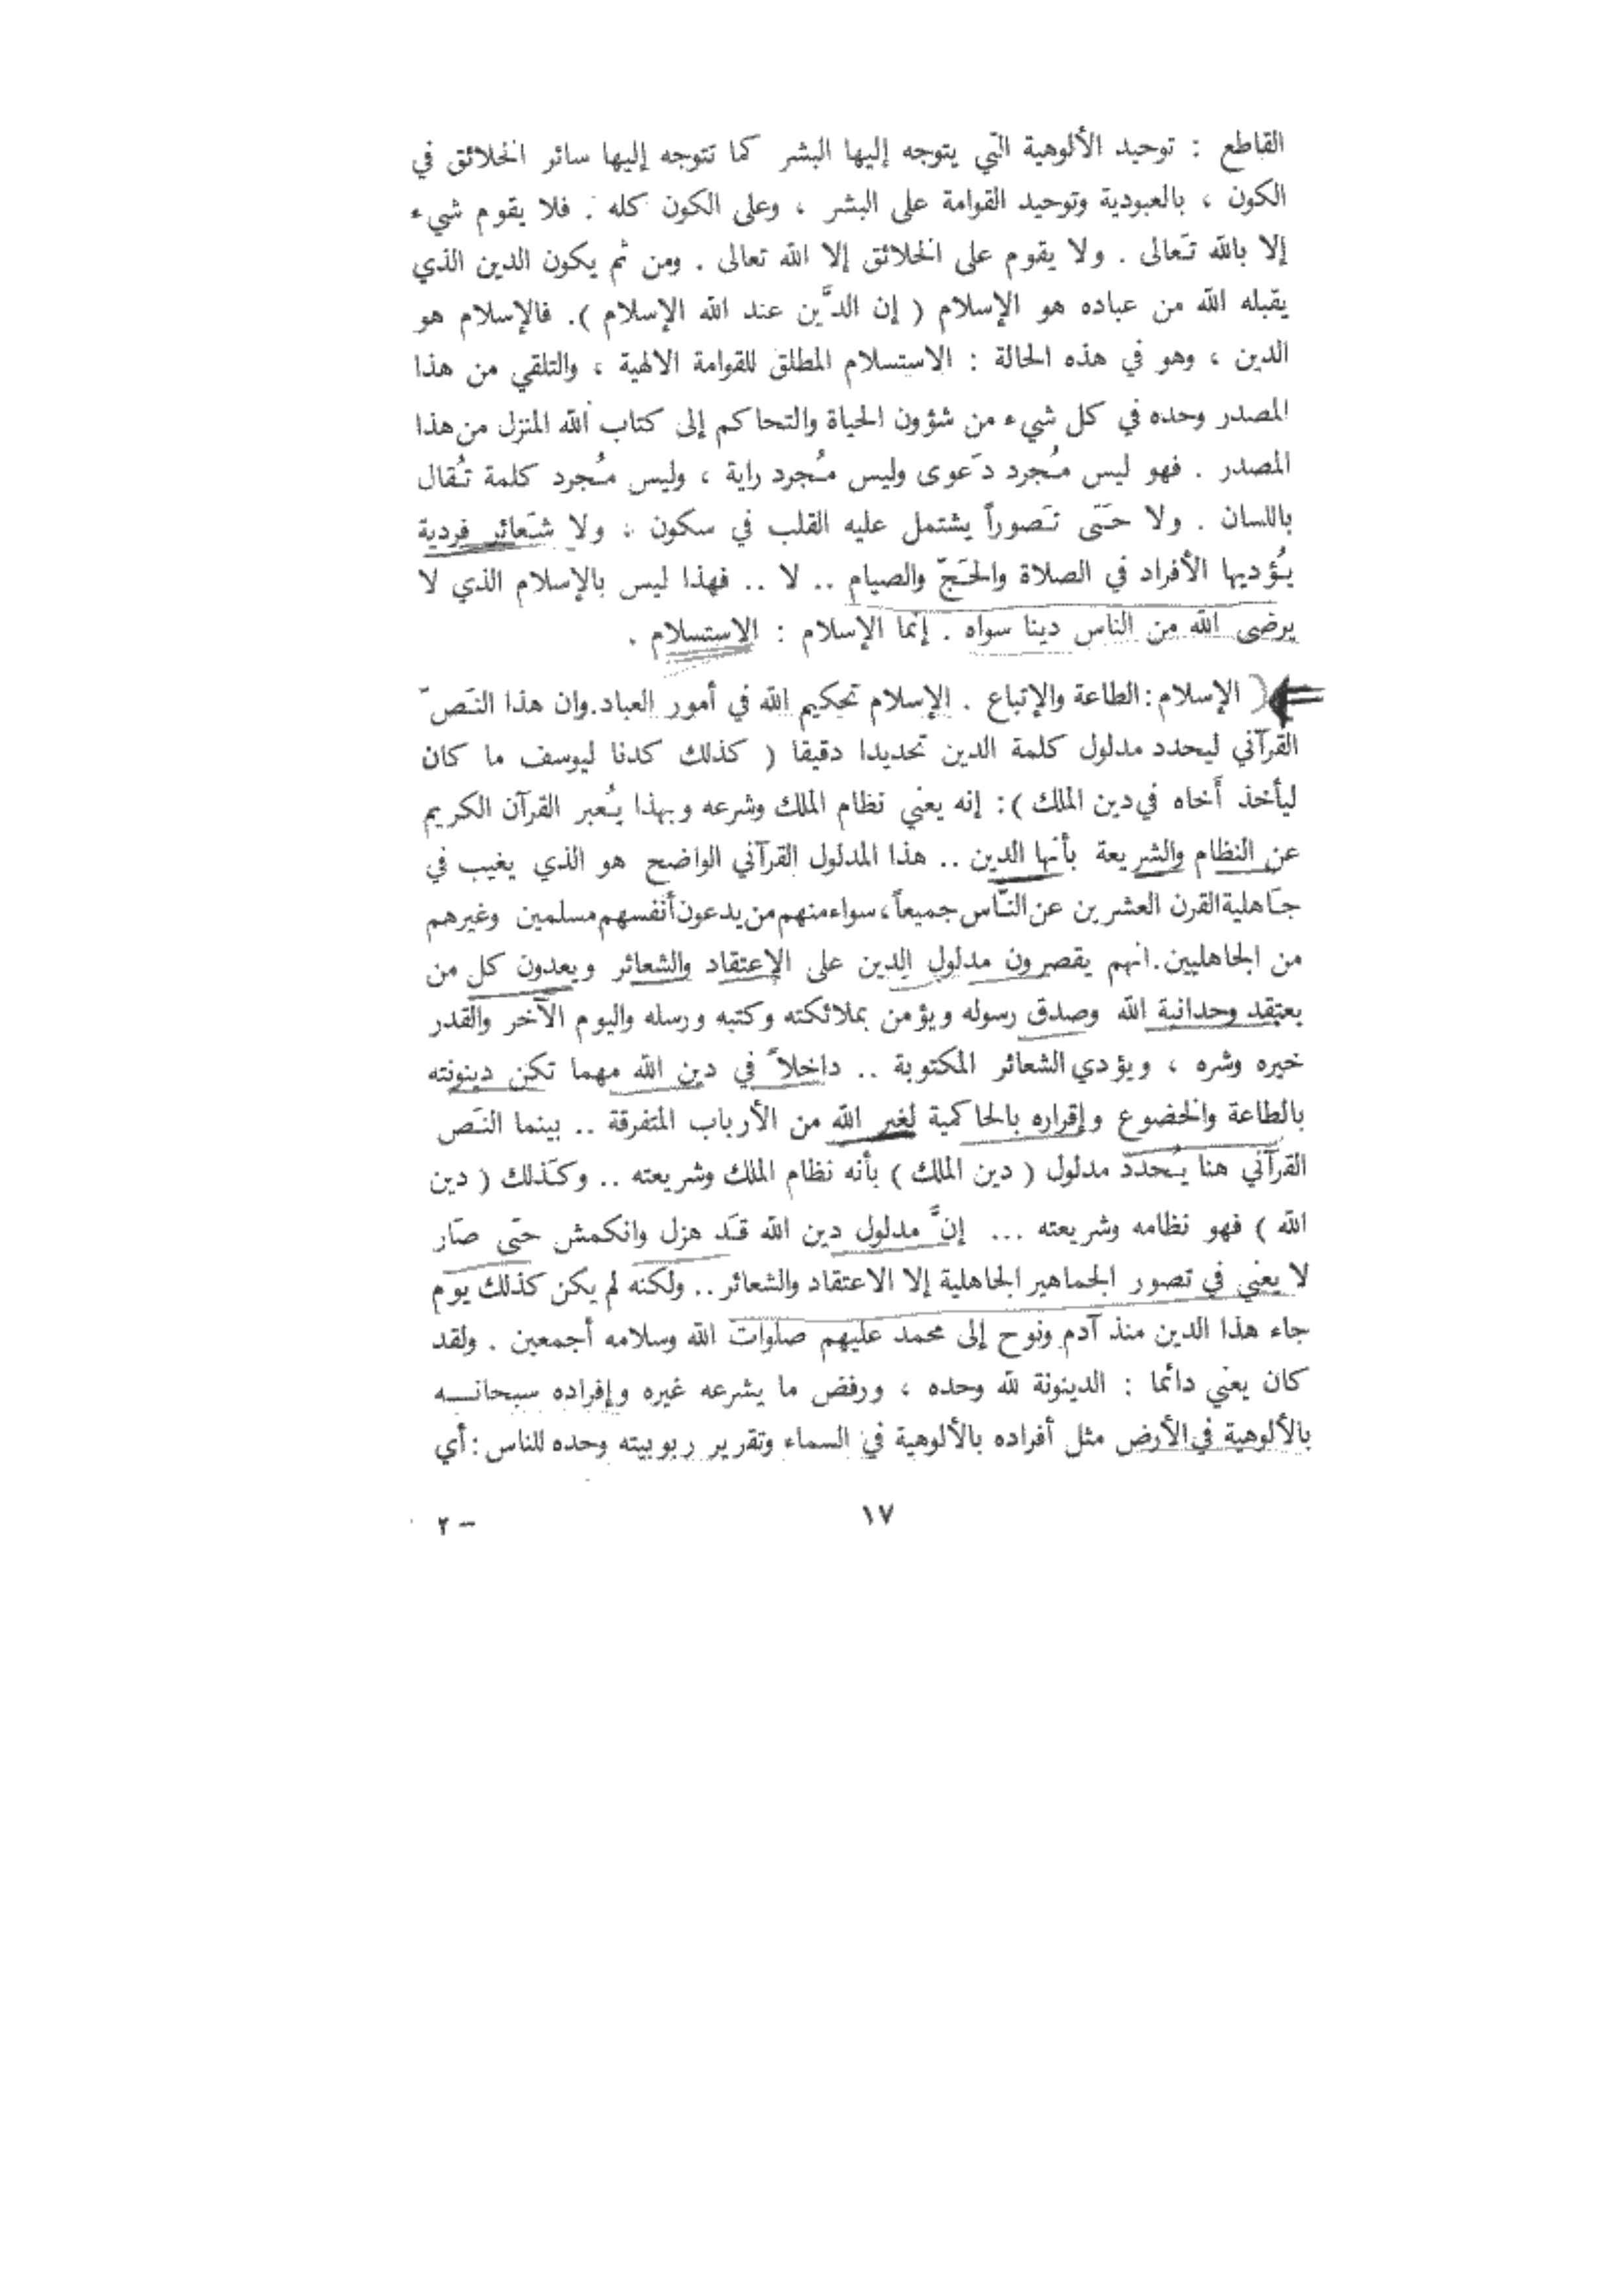 القاطع : توحيد الألوهية التي يتوجه إليها البشر كما تتوجه إليها سائر الخلائق في
الكون ، بالعبودية وتوحيد القوامة على البشر ، وعلى الكون كله . فلا يقوم شيء
إلا بالله تَعالى . ولا يقوم على الخلائق إلا الله تعالى . ومن ثم يكون الدين الذي
يقبله الله من عباده هو الإسلام ( إن الدِّين عند الله الإسلام ). فالإسلام هو
الدين ، وهو في هذه الحالة : الاستسلام المطلق للقوامة الالهية ، والتلقي من هذا
المصدر وحده في كل شيء من شؤون الحياة والتحاكم إلى كتاب الله المنزل من هذا
المصدر . فهو ليس مُجرد دَعوى وليس مُجرد راية ، وليس مُجرد كلمة تُقال
باللسان . ولا حَتّى تَصوراً يشتمل عليه القلب في سكون . ولا شَعائر فردية
يُؤديها الأفراد في الصلاة والحَجّ والصيام .. لا .. فهذا ليس بالإسلام الذي لا
يرضى الله من الناس دينا سواه . إنما الإسلام : الاستسلام .
الإسلام : الطاعة والإتباع . الإسلام تحكيم الله في أمور العباد . وان هذا النَصّ
القرآني ليحدد مدلول كلمة الدين تحديدا دقيقا ( كذلك كدنا ليوسف ما كان
ليأخذ أخاه في دين الملك ) : إنه يعني نظام الملك وشرعه وبهذا يُعبر القرآن الكريم
عن النظام والشريعة بأنها الدين .. هذا المدلول القرآني الواضح هو الذي يغيب في
جَاهلية القرن العشرين عن النّاس جميعاً ، سواء منهم من يدعون أنفسهم مسلمين وغيرهم
من الجاهليين . انهم يقصرون مدلول الدين على الإعتقاد والشعائر ويعدون كل من
يعتقد وحدانية الله وصدق رسوله ويؤمن بملائكته وكتبه ورسله واليوم الآخر والقدر
خيره وشره ، ويؤدي الشعائر المكتوبة .. داخلاً في دين الله مهما تكن دينونته
بالطاعة والخضوع وإقراره بالحاكمية لغير الله من الأرباب المتفرقة .. بينما النَص
القرآني هنا يُحدد مدلول ( دين الملك ) بأنه نظام الملك وشريعته .. وكَذلك ( دين
الله ) فهو نظامه وشريعته ... إنَّ مدلول دين الله قَد هزل وانكمش حتى صَار
لا يعني في تصور الجماهير الجاهلية إلا الاعتقاد والشعائر .. ولكنه لم يكن كذلك يوم
جاء هذا الدين منذ آدم ونوح إلى محمد عليهم صلوات الله وسلامه أجمعين . ولقد
كان يعني دائما : الدينونة لله وحده ، ورفض ما يشرعه غيره وإفراده سبحانـــه
بالألوهية في الأرض مثل أفراده بالألوهية في السماء وتقرير ربوبيته وحده للناس : أي
١٧
٢ –